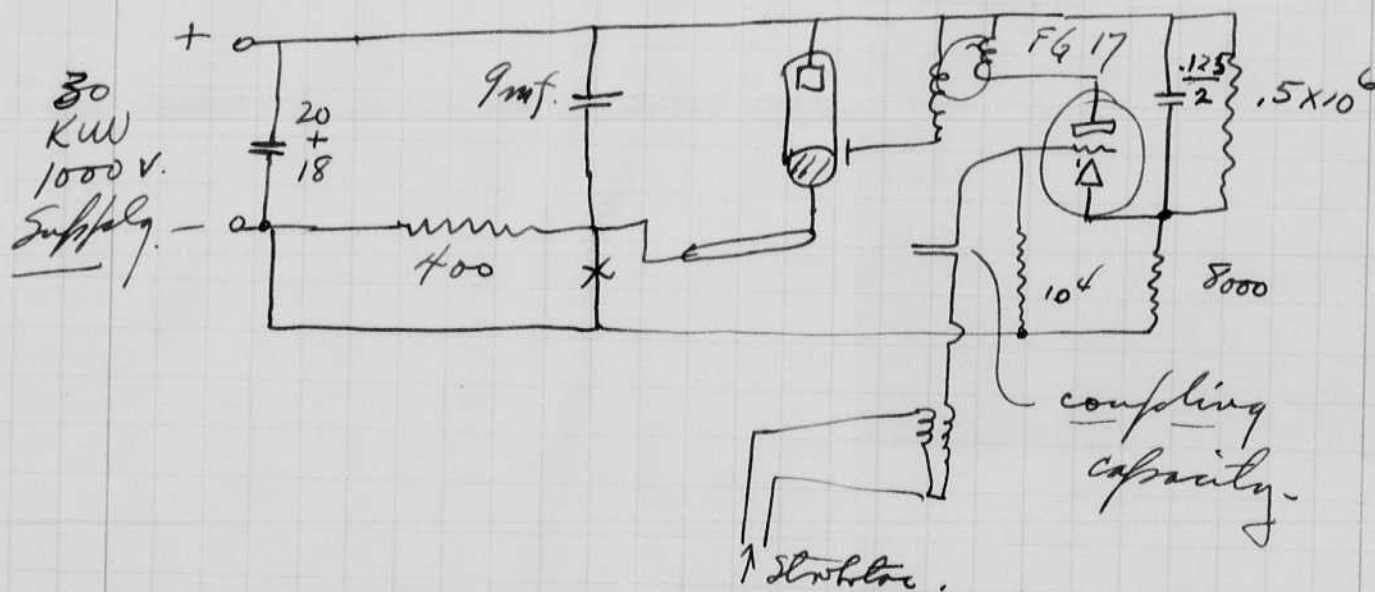 +
30
KW
1000 V.
Supply. -
20
+
18
9 mf.
400
X
FG 17
.125
2
.5 X 10⁶
10⁴
8000
coupling
capacity -
↑ Strobotac.